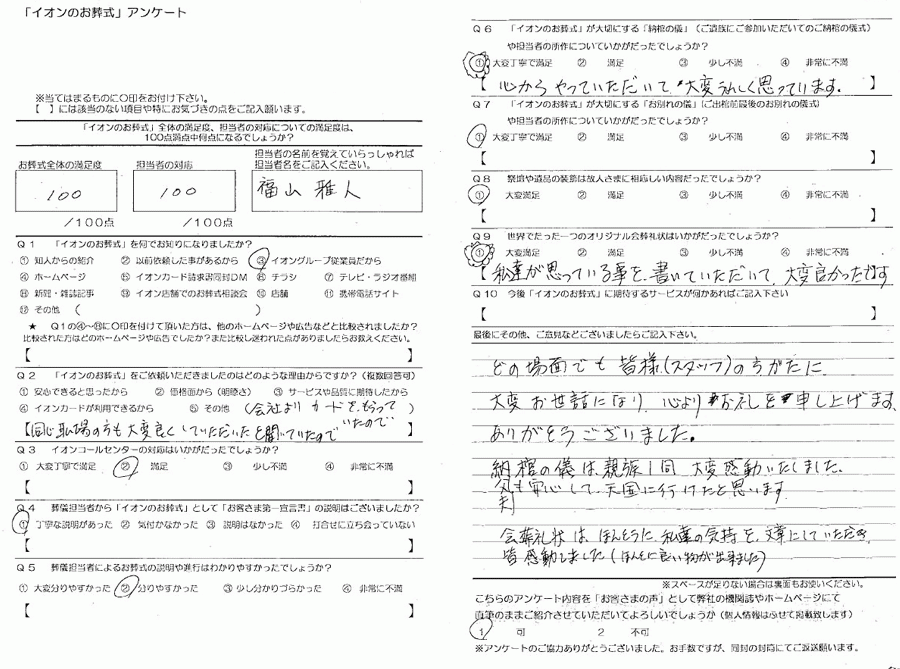 「イオンのお葬式」アンケート
※当てはまるものに○印をお付け下さい。
【　】には該当のない項目や特にお気づきの点をご記入願います。
「イオンのお葬式」全体の満足度、担当者の対応についての満足度は、
100点満点中何点になるでしょうか?
お葬式全体の満足度
100
/100点
担当者の対応
100
/100点
担当者の名前を覚えていらっしゃれば
担当者名をご記入ください。
福山 雅人
Q1 「イオンのお葬式」を何でお知りになりましたか?
① 知人からの紹介 ② 以前依頼した事があるから ③ イオングループ従業員だから
④ ホームページ ⑤ イオンカード請求書同封DM ⑥ チラシ ⑦ テレビ・ラジオ番組
⑧ 新聞・雑誌記事 ⑨ イオン店舗でのお葬式相談会 ⑩ 店舗 ⑪ 携帯電話サイト
⑫ その他 (　　)
★ Q1の④~⑪に○印を付けて頂いた方は、他のホームページや広告などと比較されましたか?
比較された方はどのホームページや広告でしたか?また比較し迷われた点がありましたらお教えください。
【　　】
Q2 「イオンのお葬式」をご依頼いただきましたのはどのような理由からですか?(複数回答可)
① 安心できると思ったから ② 価格面から(明瞭さ) ③ サービスや品質に期待したから
④ イオンカードが利用できるから ⑤ その他 (会社より カードを、もらって
いたので)
【同じ職場の方も大変良くしていただいたと聞いていたので】
Q3 イオンコールセンターの対応はいかがだったでしょうか?
① 大変丁寧で満足 ② 満足 ③ 少し不満 ④ 非常に不満
【　　】
Q4 葬儀担当者から「イオンのお葬式」として「お客さま第一宣言書」の説明はございましたか?
① 丁寧な説明があった ② 気付かなかった ③ 説明はなかった ④ 打合せに立ち会っていない
【　　】
Q5 葬儀担当者によるお葬式の説明や進行はわかりやすかったでしょうか?
① 大変分りやすかった ② 分りやすかった ③ 少し分かりづらかった ④ 非常に不満
【　　】
Q6 「イオンのお葬式」が大切にする「納棺の儀」(ご遺族にご参加いただいてのご納棺の儀式)
や担当者の所作についていかがだったでしょうか?
① 大変丁寧で満足 ② 満足 ③ 少し不満 ④ 非常に不満
【心からやっていただいて、大変うれしく思っています。】
Q7 「イオンのお葬式」が大切にする「お別れの儀」(ご出棺前最後のお別れの儀式)
や担当者の所作についていかがだったでしょうか?
① 大変丁寧で満足 ② 満足 ③ 少し不満 ④ 非常に不満
【　　】
Q8 祭壇や遺品の装飾は故人さまに相応しい内容だったでしょうか?
① 大変満足 ② 満足 ③ 少し不満 ④ 非常に不満
【　　】
Q9 世界でたった一つのオリジナル会葬礼状はいかがだったでしょうか?
① 大変満足 ② 満足 ③ 少し不満 ④ 非常に不満
【私達が思っている事を、書いていただいて、大変良かったです】
Q10 今後「イオンのお葬式」に期待するサービスが何かあればご記入下さい
【　　】
最後にその他、ご意見などございましたらご記入下さい。
どの場面でも皆様(スタッフ)のうがたに
大変お世話になり、心よりお礼を申し上げます
ありがとうございました。
納棺の儀は、親族1同 大変感動いたしました。
父(夫)も安心して、天国に行けたと思います
会葬礼状は、ほんとうに、私達の気持を、文章にしていただき
皆感動しました(ほんとに良い物が出来ました)
※スペースが足りない場合は裏面もお使いください。
こちらのアンケート内容を「お客さまの声」として弊社の機関誌やホームページにて
直筆のままご紹介させていただいてよろしいでしょうか(個人情報はふせて掲載致します)
1 可 2 不可
※アンケートのご協力ありがとうございました。お手数ですが、同封の封筒にてご返送願います。